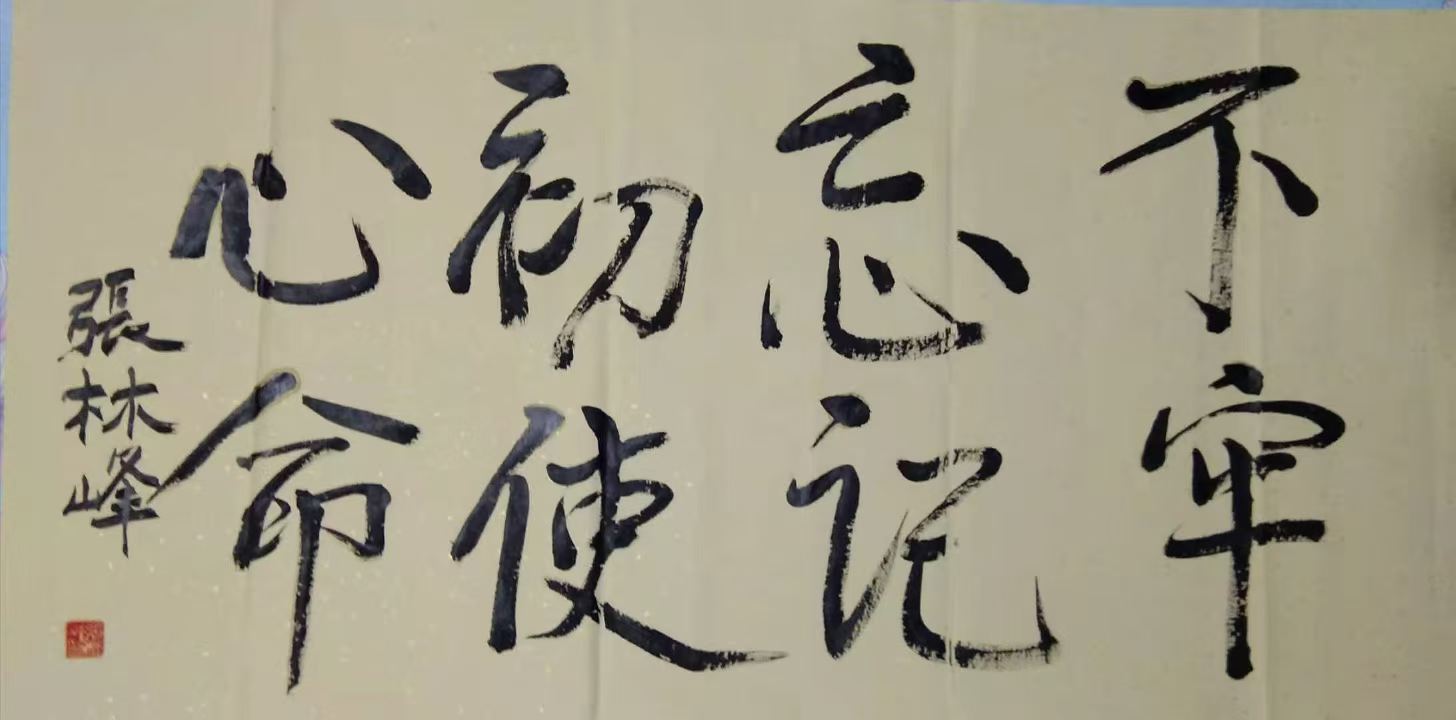 不忘初心
牢记使命
張林峰